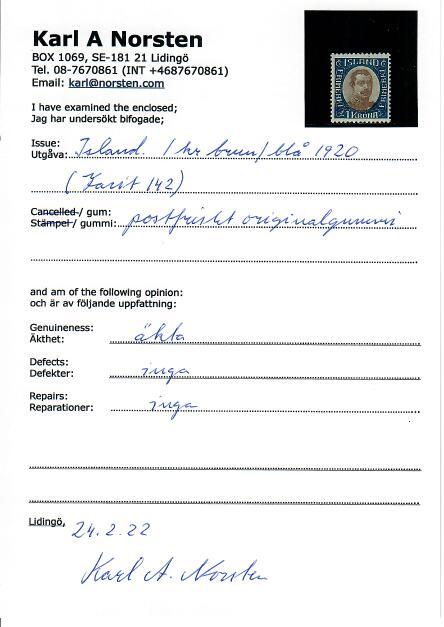 Karl A Norsten
BOX 1069, SE-181 21 Lidingö
Tel. 08-7670861 (INT +4687670861)
Email: karl@norsten.com
ISLAND
FRIMERKI
1 KRONA
I have examined the enclosed;
Jag har undersökt bifogade;
Issue:
Utgåva: Island. 1 kr brun/blå 1920
(Facit 142)
Cancelled / gum:
Stämpel / gummi: postfriskt originalgummi
and am of the following opinion:
och är av följande uppfattning:
Genuineness:
Äkthet: äkta
Defects:
Defekter: inga
Repairs:
Reparationer: inga
Lidingö, 24.2.22
Karl A. Norsten